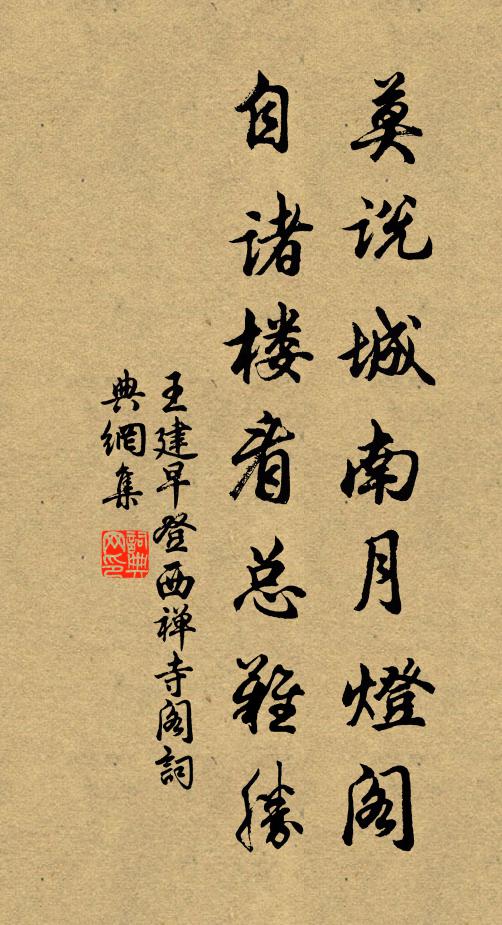 莫说城南月燈阁
自诸楼看总難勝
王建早登西禅寺阁詞
典網集
詞典网印